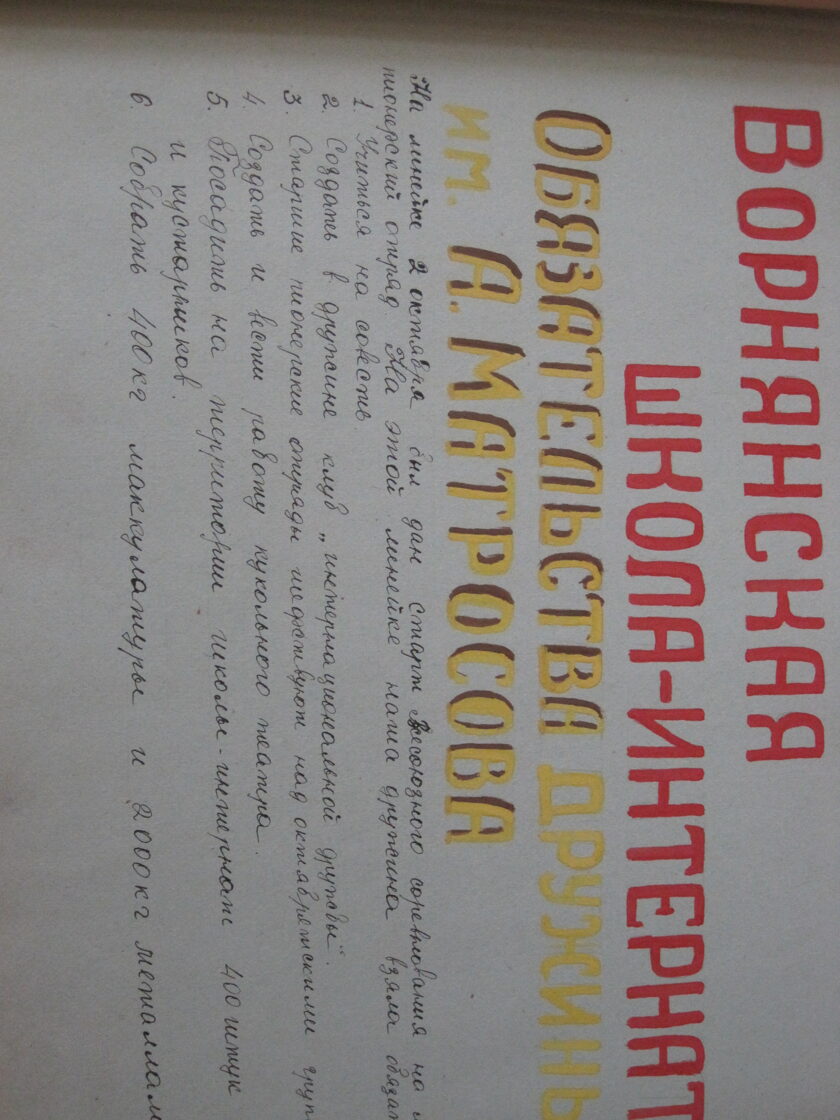 ВОРНЯНСКАЯ
ШКОЛА-ИНТЕРНАТ
ОБЯЗАТЕЛЬСТВА ДРУЖИНЫ
им. А. МАТРОСОВА
На линейке 2 октября был дан старт Всесоюзного соревнования на
пионерский отряд На этой линейке наша дружина взяла обязат
1. Учиться на совесть
2. Создать в дружине клуб „интернациональной дружбы".
3. Старшие пионерские отряды шефствуют над октябрятскими груп
4. Создать и вести работу кукольного театра.
5. Посадить на территории школы-интернат 400 штук
и кустарников.
6. Собрать 400 кг маккулатуры и 2000 кг металлам